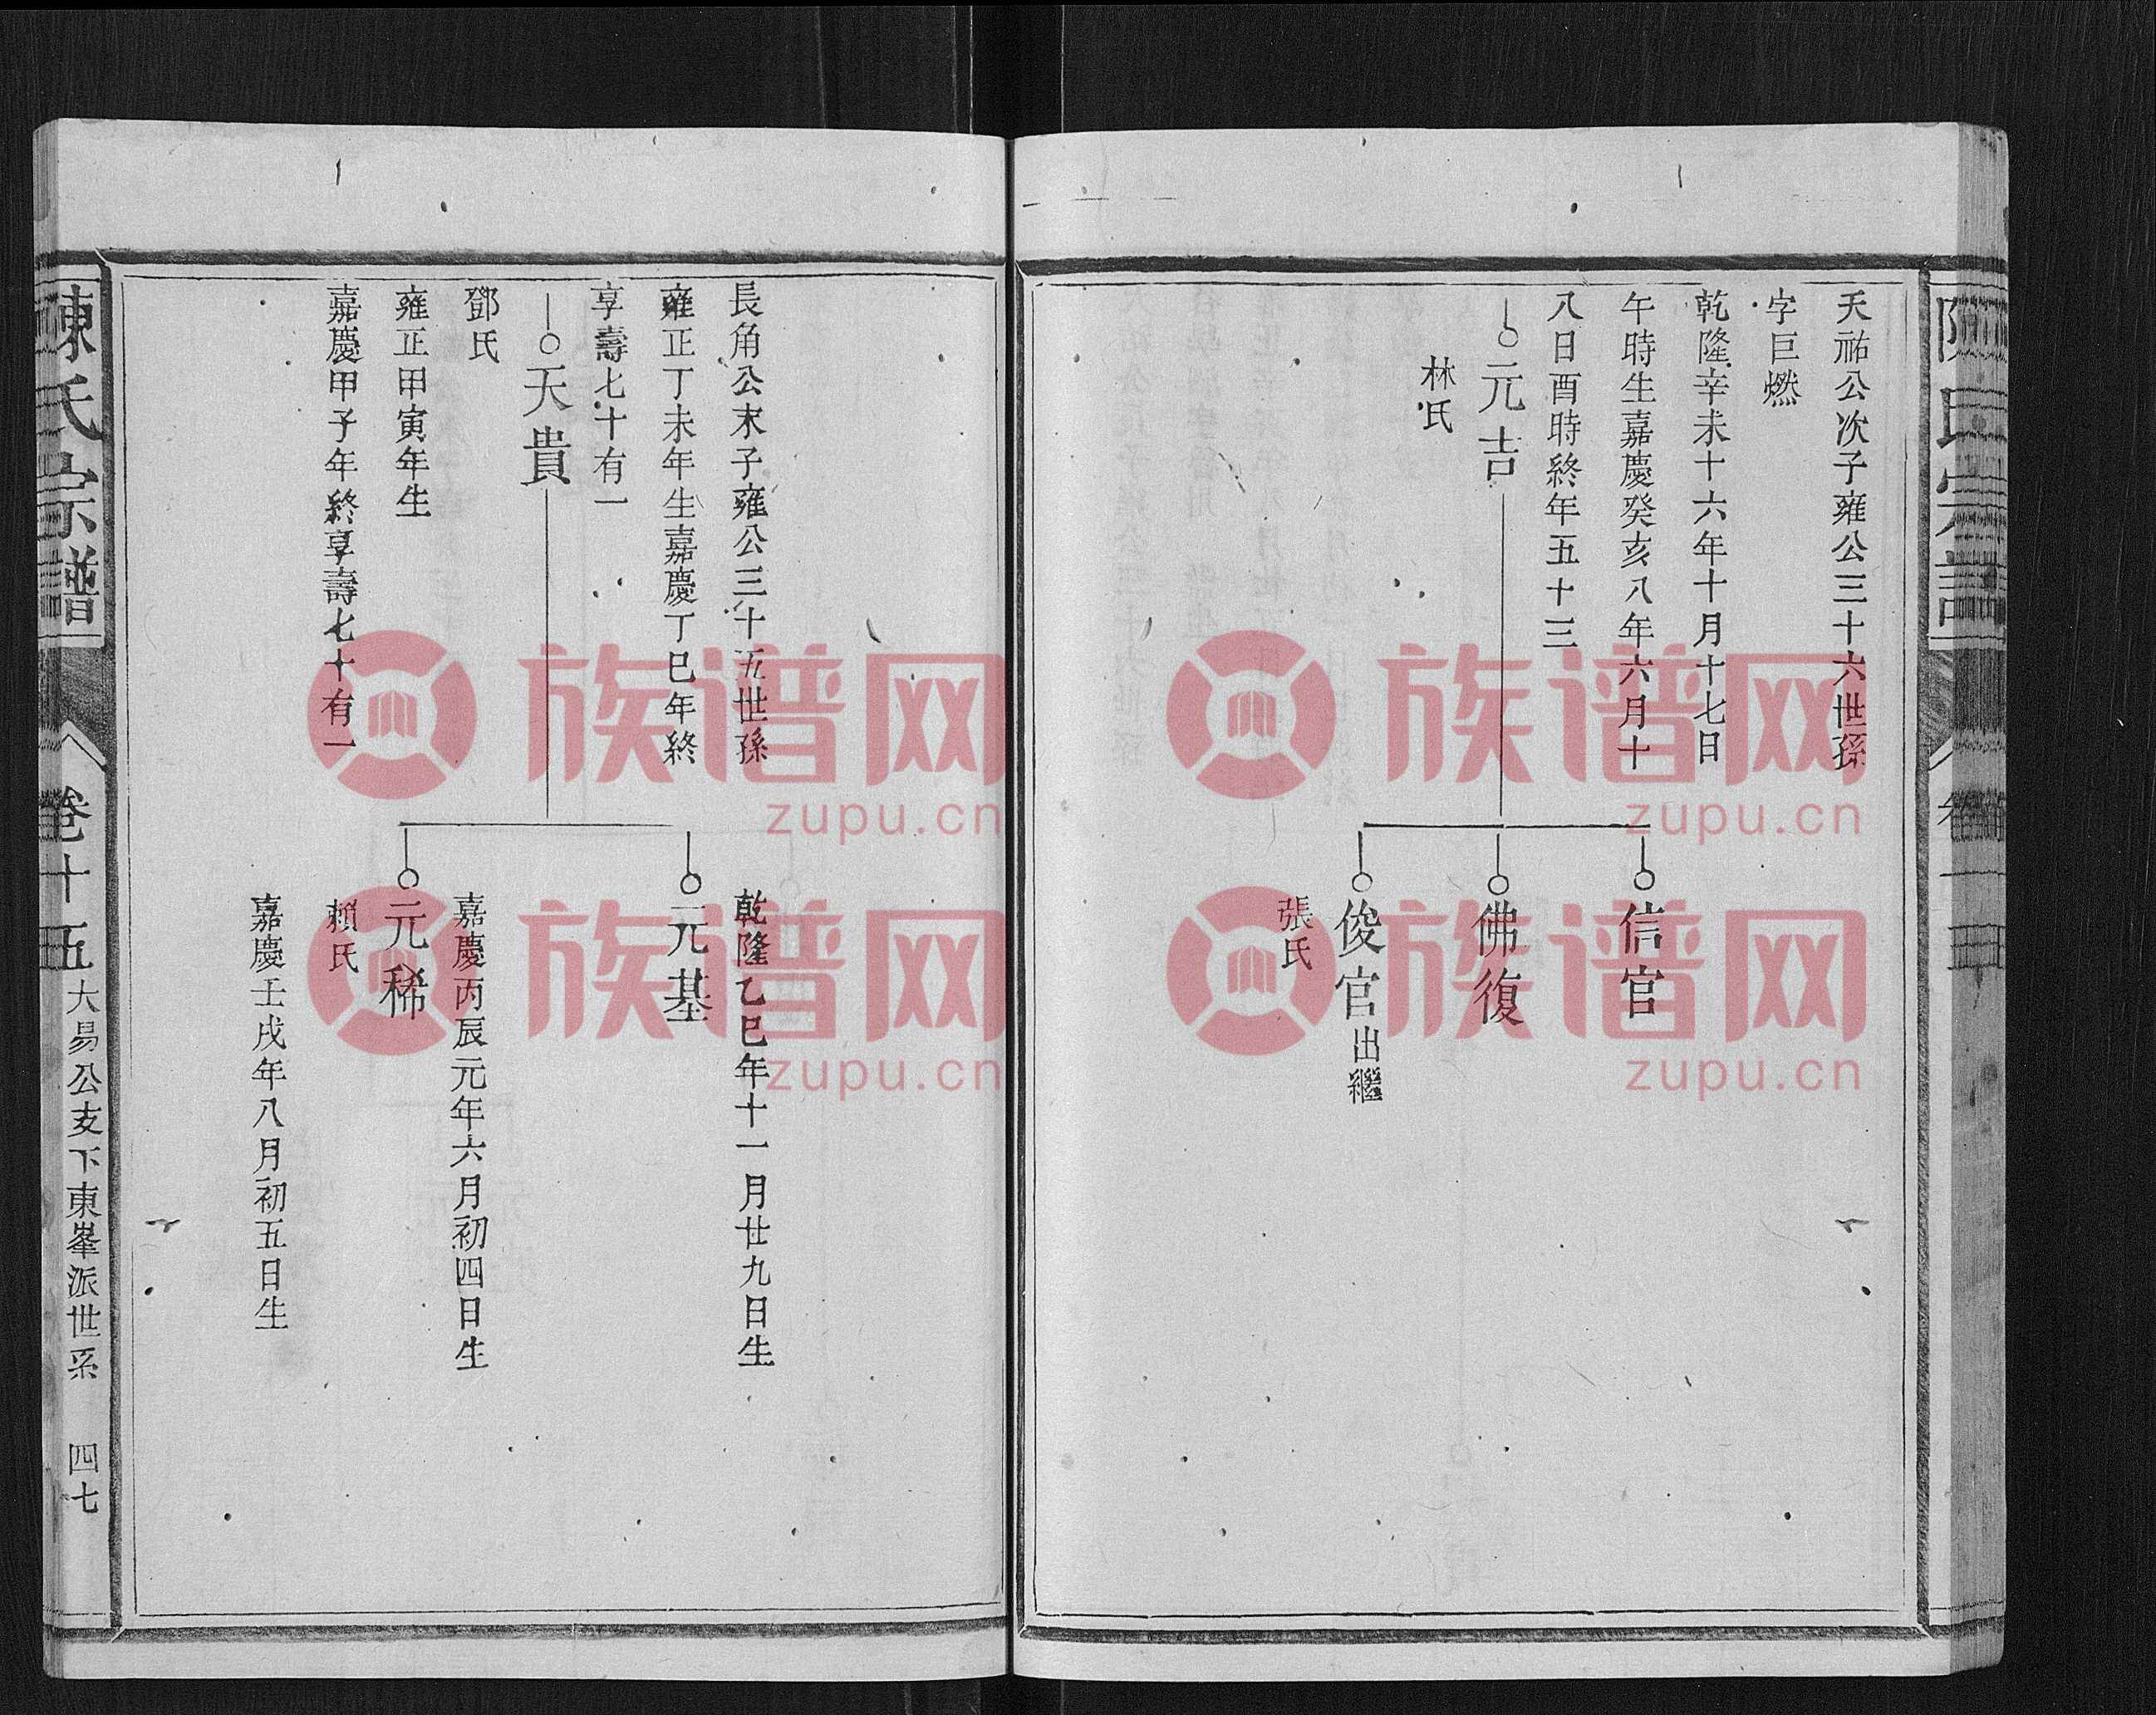 天祐公次子雍公三十六世孫
字巨燃
乾隆辛未十六年十月十七日
午時生嘉慶癸亥八年六月十
八日酉時終年五十三
元吉
林氏
信官
佛復
俊官出繼
張氏
長角公末子雍公三十五世孫
雍正丁未年生嘉慶丁巳年終
享壽七十有一
天貴
鄧氏
雍正甲寅年生
嘉慶甲子年終享壽七十有一
乾隆乙巳年十一月廿九日生
元基
嘉慶丙辰元年六月初四日生
元稀
賴氏
嘉慶壬戌年八月初五日生
陳氏宗譜
卷十五
大易公支下東峯派世系
四七
族谱网
zupu.cn
族谱网
zupu.cn
族谱网
zupu.cn
族谱网
zupu.cn